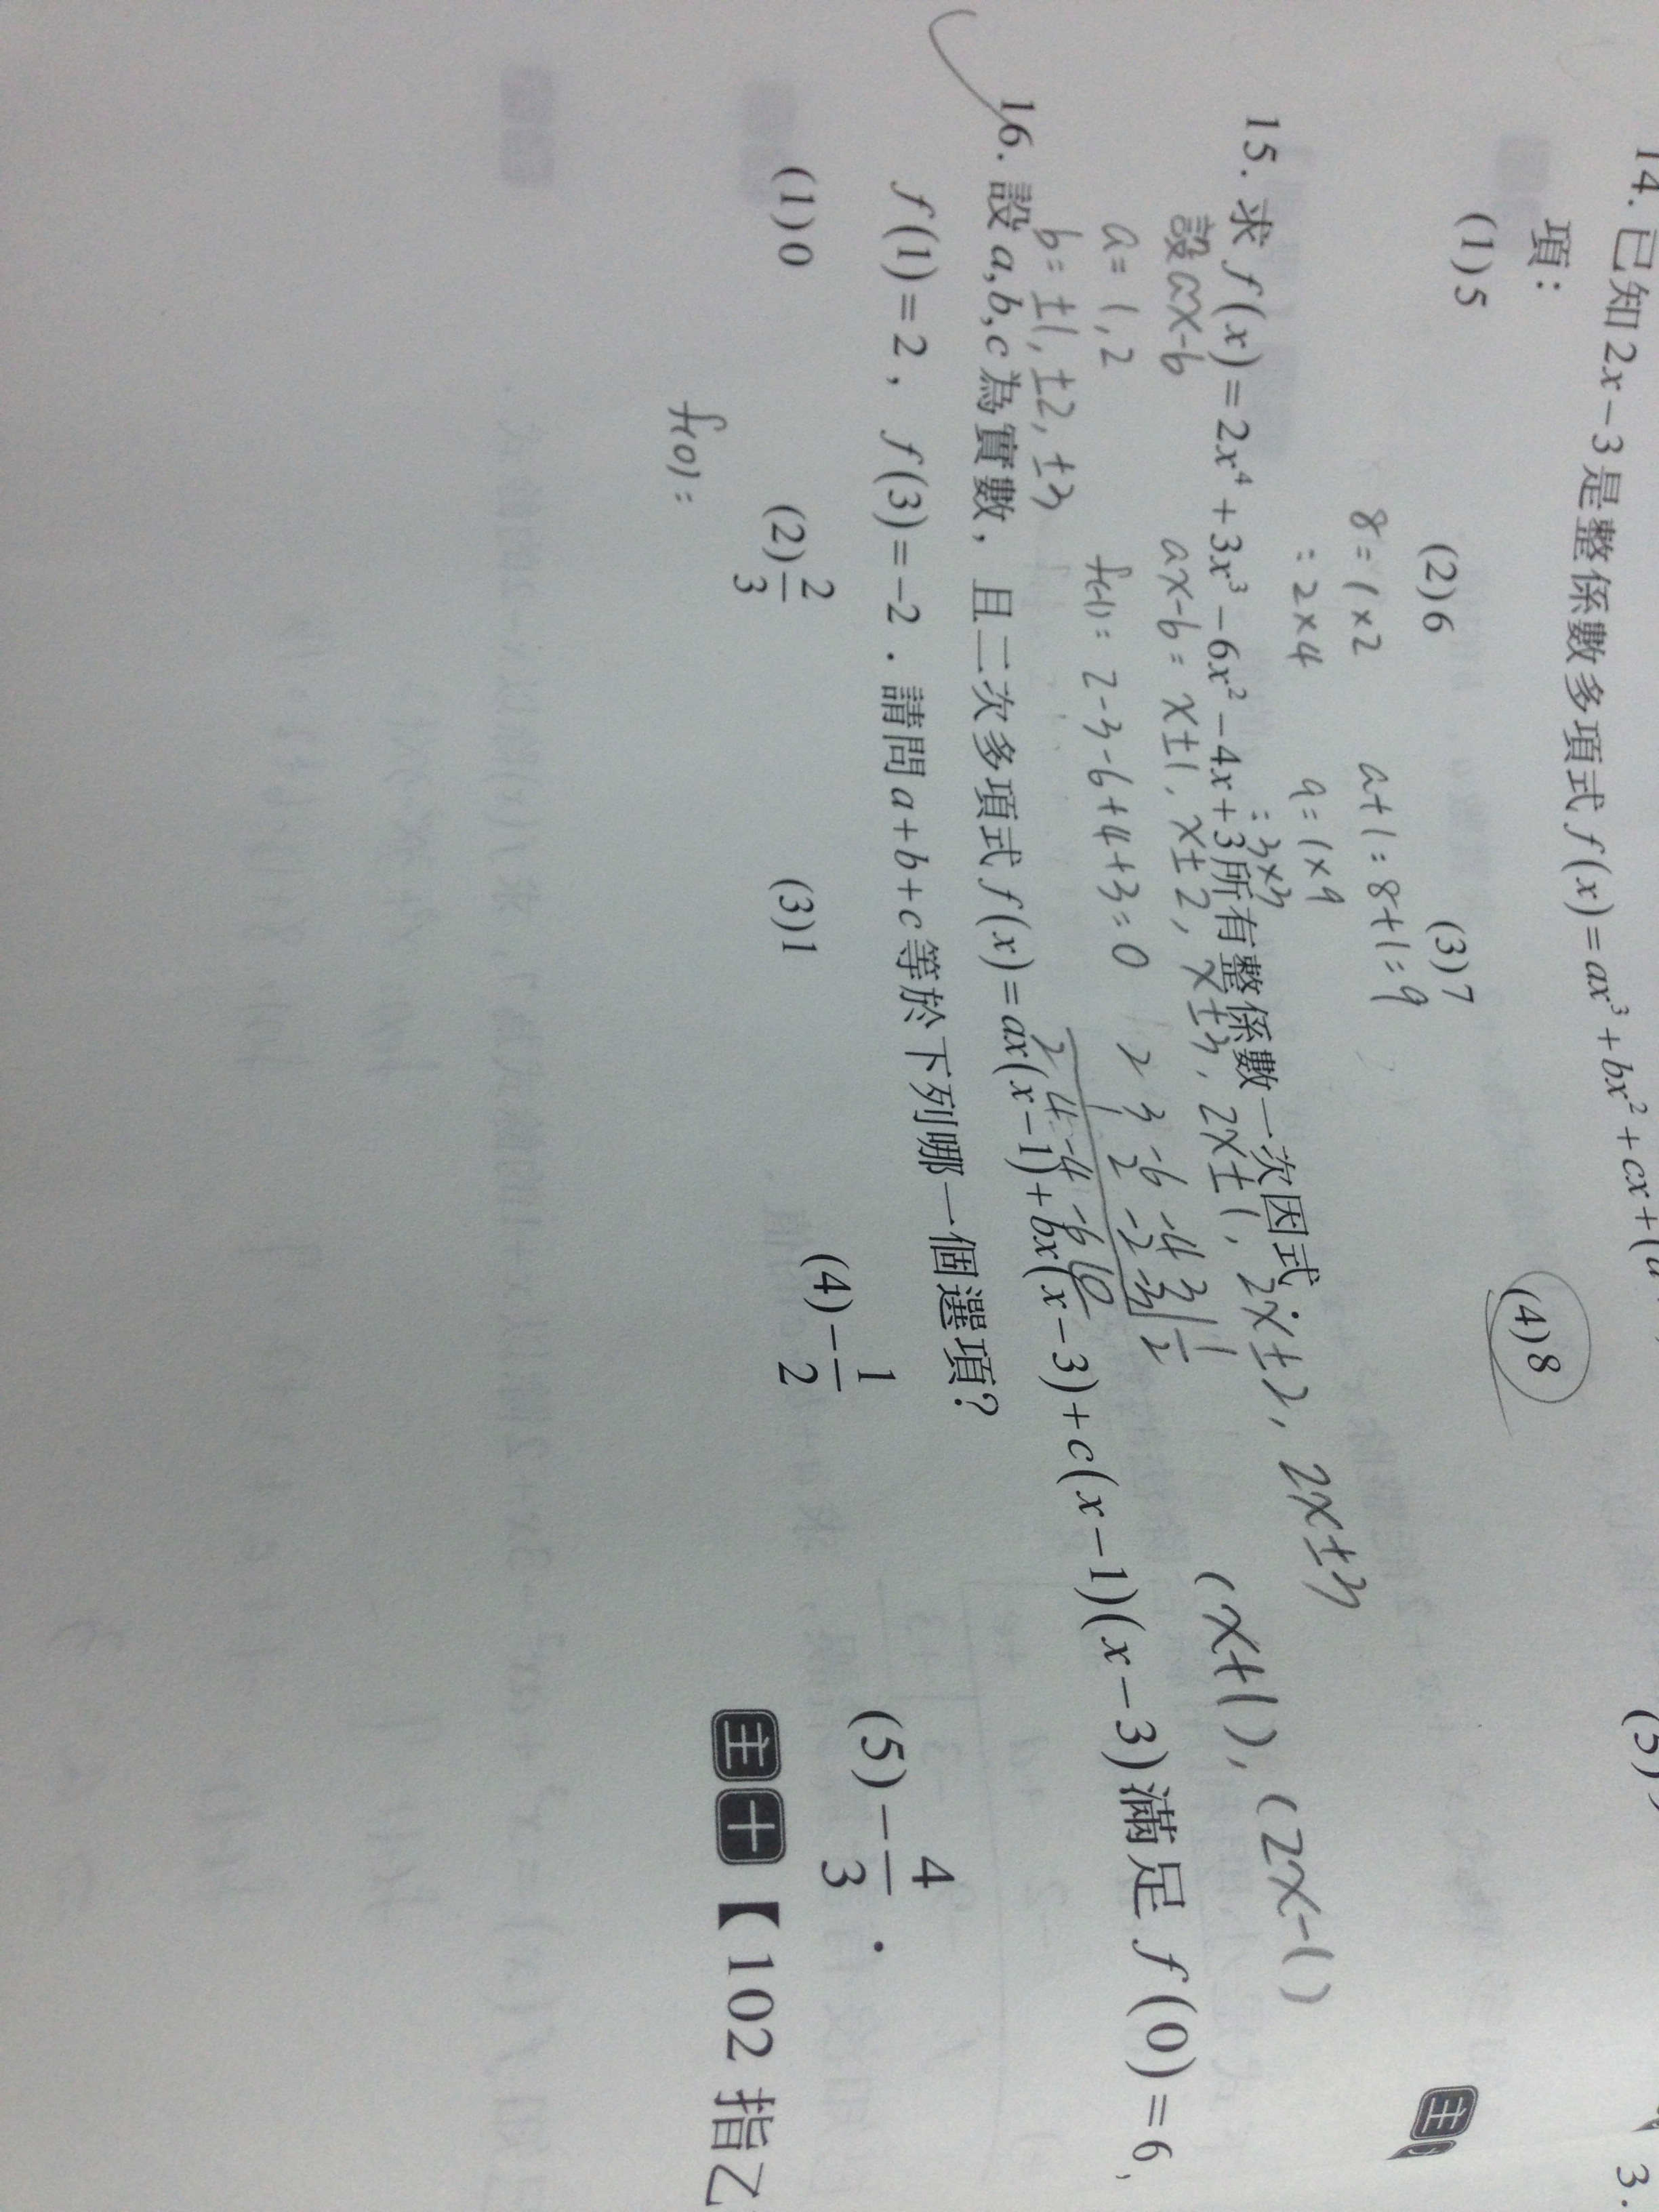 14. 已知 2x-3 是整係數多項式 f(x)=ax³+bx²+cx+(
項：
(1)5 (2)6 (3)7 (4)8 (5)
8=1×2 a+1=8+1=9
=2×4 9=1×9
=3×3
15. 求 f(x)=2x⁴+3x³-6x²-4x+3所有整係數一次因式．
設ax-b ax-b= x±1, x±2, x±3, 2x±1, 2x±2, 2x±3
(x+1), (2x-1)
a= 1,2 f(-1)= 2-3-6+4+3=0
b= ±1, ±2, ±3
2 3 -6 -4 3 | 1/2
1 2 -2 -3
2 4 -4 -6 0
16. 設 a,b,c 為實數，且二次多項式 f(x)=ax(x-1)+bx(x-3)+c(x-1)(x-3)滿足 f(0)=6,
f(1)=2，f(3)=-2．請問 a+b+c 等於下列哪一個選項？
(1)0 (2)2/3 (3)1 (4)-1/2 (5)-4/3．
主 十【102 指乙
f(0)=
主
3.